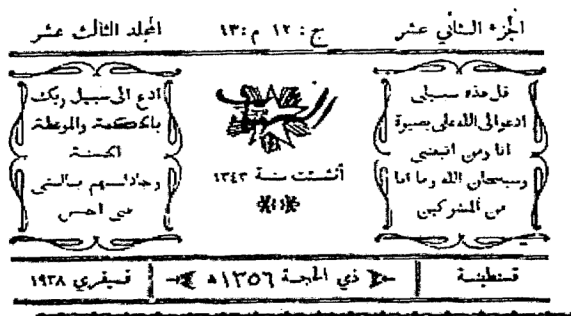 الجزء الثاني عشر
ج : ١٢ م : ١٣
المجلد الثالث عشر
قل هذه سبيلي
ادعو الى الله على بصيرة
انا ومن اتبعني
وسبحان الله وما انا
من المشركين
أنشئت سنة ١٣٤٣
ادع الى سبيل ربك
بالحكمة والموعظة
الحسنة
وجادلهم بالتي
هي احسن
قسنطينة
ذي الحجة ١٣٥٦ھ
فيفري ١٩٣٨